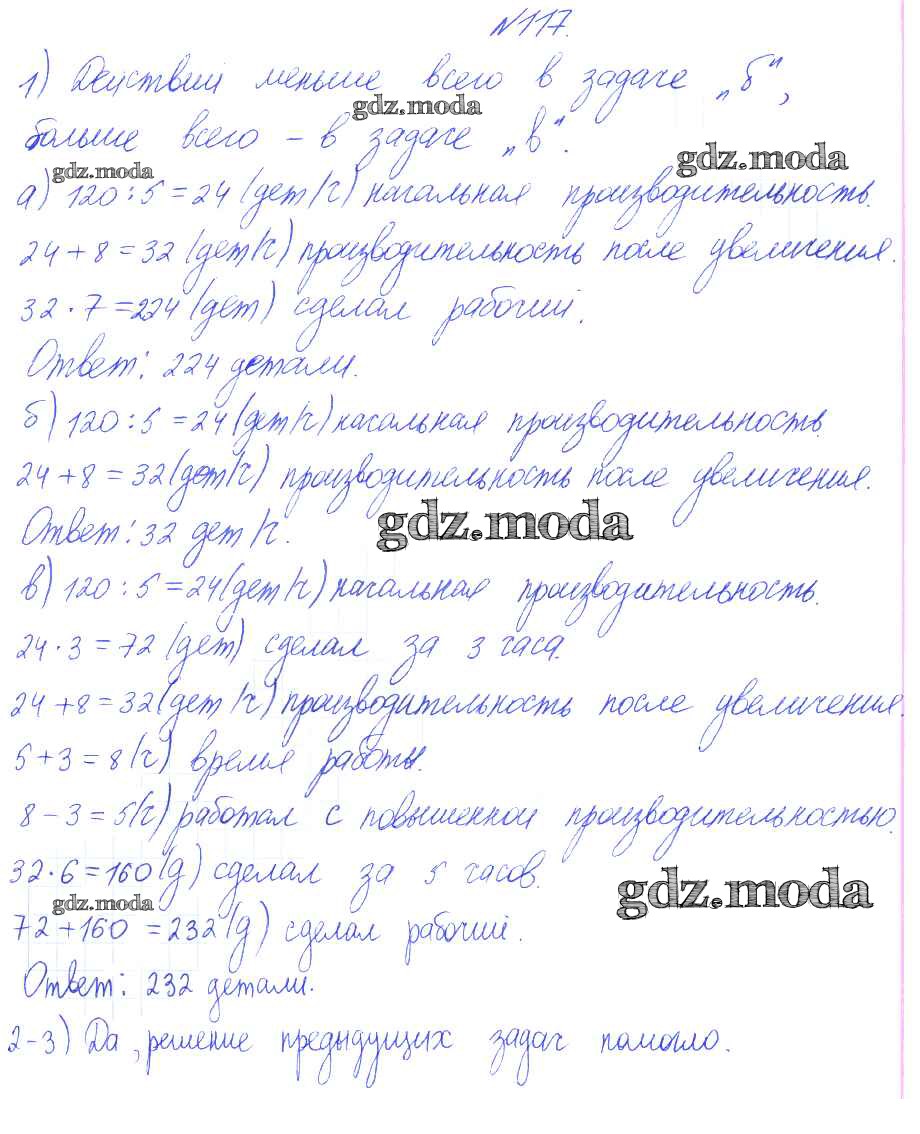 №117.
1) Действий меньше всего в задаче „б“,
gdz.moda
больше всего – в задаче „в“.
gdz.moda
gdz.moda
а) 120 : 5 = 24 (дет/ч) начальная производительность.
24 + 8 = 32 (дет/ч) производительность после увеличения.
32 · 7 = 224 (дет) сделал рабочий.
Ответ: 224 детали.
б) 120 : 5 = 24 (дет/ч) начальная производительность.
24 + 8 = 32 (дет/ч) производительность после увеличения.
gdz.moda
Ответ: 32 дет/ч.
в) 120 : 5 = 24 (дет/ч) начальная производительность.
24 · 3 = 72 (дет) сделал за 3 часа.
24 + 8 = 32 (дет/ч) производительность после увеличения.
5 + 3 = 8 (ч) время работы.
8 – 3 = 5 (ч) работал с повышенной производительностью.
32 · 6 = 160 (д) сделал за 5 часов.
gdz.moda
gdz.moda
72 + 160 = 232 (д) сделал рабочий.
Ответ: 232 детали.
2-3) Да, решение предыдущих задач помогло.